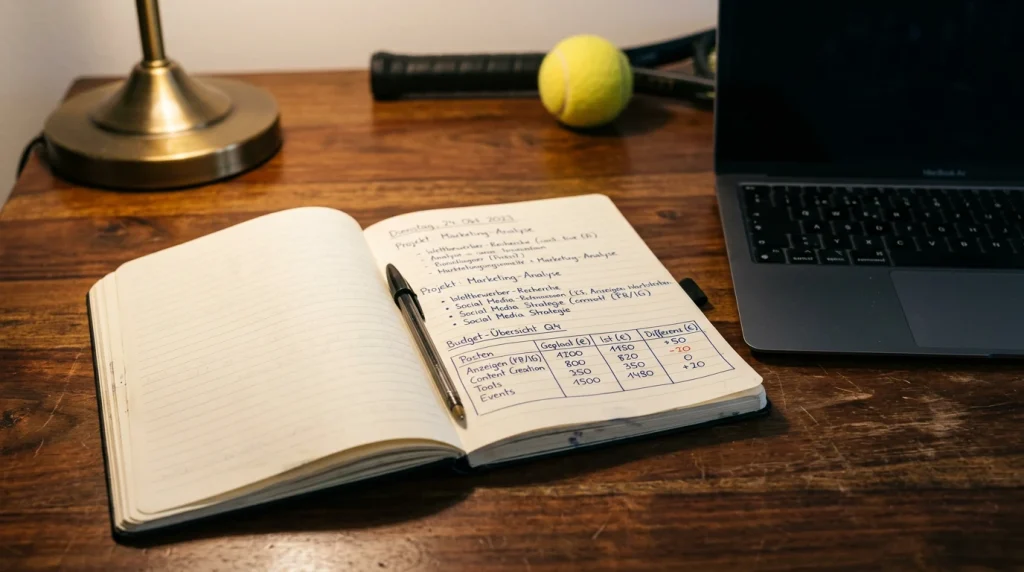 Dienstag, 24. Okt 2023
Projekt: Marketing-Analyse
- Wettbewerber-Recherche
- Analyse
-
- Marketing-Analyse
Projekt: Marketing-Analyse
• Wettbewerber-Recherche
• Social Media Anzeigen
• Social Media Strategie (FB/IG)
• Social Media Strategie
Budget-Übersicht Q4
Posten Geplant (€) Ist (€) Differenz (€)
Anzeigen (FB/IG) 1200 1150 +50
Content Creation 800 820 -20
Tools 350 350 0
Events 1500 1480 +20
MacBook Air